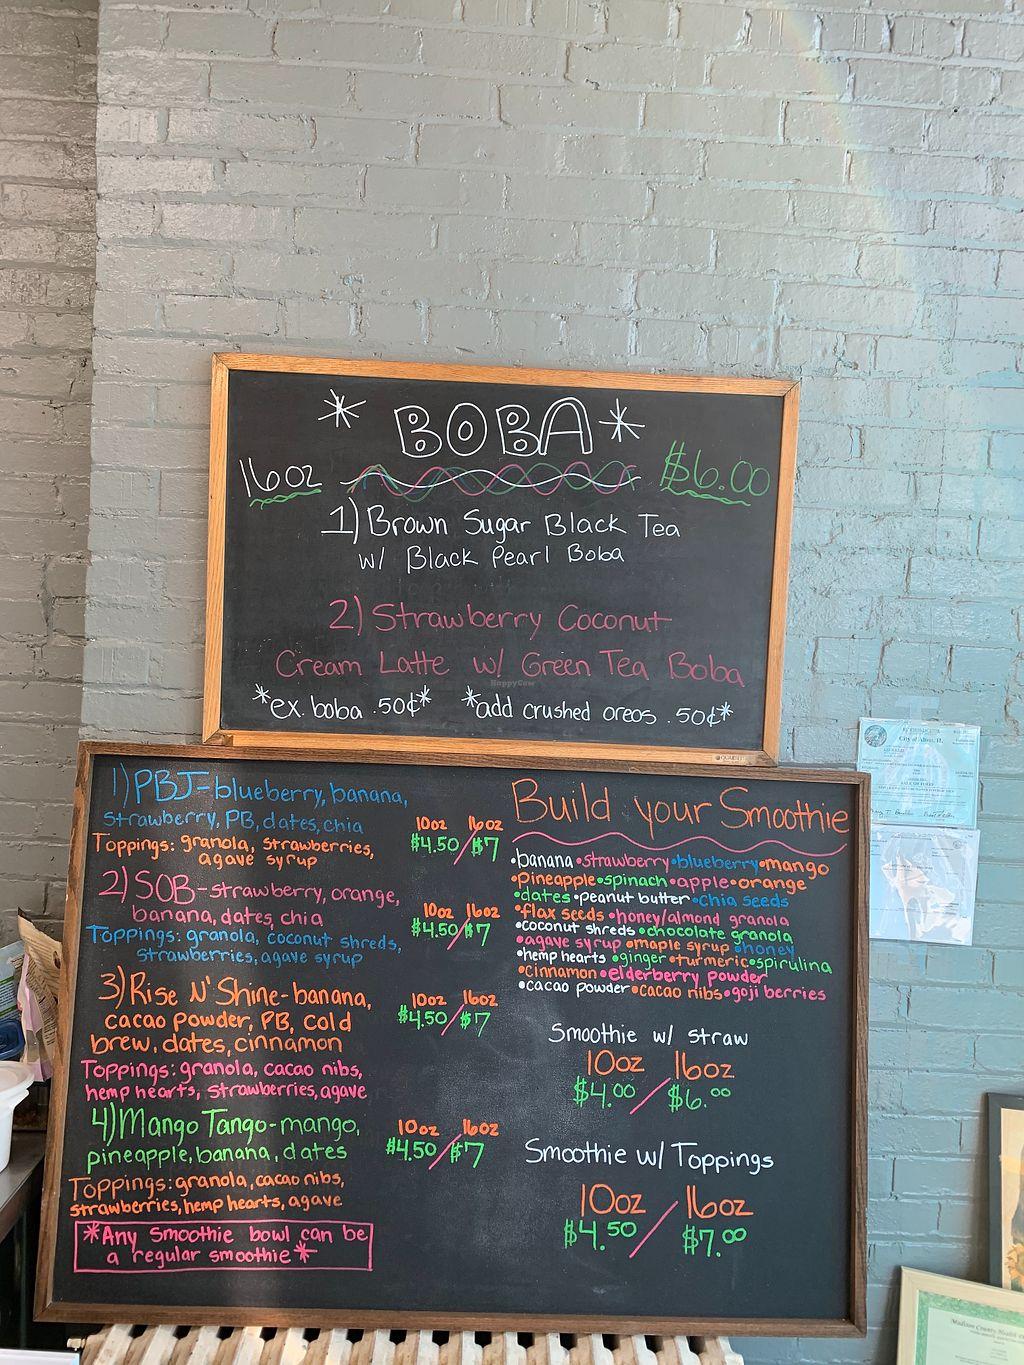 * BOBA *
16oz $6.00
1) Brown Sugar Black Tea
w/ Black Pearl Boba
2) Strawberry Coconut
Cream Latte w/ Green Tea Boba
*ex. boba .50¢* *add crushed oreos .50¢*
HappyCow
1) PBJ-blueberry, banana,
strawberry, PB, dates, chia
10oz 16oz
$4.50/$7
Toppings: granola, strawberries,
agave syrup
2) SOB-strawberry, orange,
banana, dates, chia
10oz 16oz
$4.50/$7
Toppings: granola, coconut shreds,
strawberries, agave syrup
3) Rise N' Shine-banana,
cacao powder, PB, cold
brew, dates, cinnamon
10oz 16oz
$4.50/$7
Toppings: granola, cacao nibs,
hemp hearts, strawberries, agave
4) Mango Tango-mango,
pineapple, banana, dates
10oz 16oz
$4.50/$7
Toppings: granola, cacao nibs,
strawberries, hemp hearts, agave
*Any smoothie bowl can be
a regular smoothie*
Build your Smoothie
•banana•strawberry•blueberry•mango
•pineapple•spinach•apple•orange
•dates•peanut butter•chia seeds
•flax seeds•honey/almond granola
•coconut shreds•chocolate granola
•agave syrup•maple syrup•honey
•hemp hearts•ginger•turmeric•spirulina
•cinnamon•elderberry powder
•cacao powder•cacao nibs•goji berries
Smoothie w/ straw
10oz 16oz
$4.00/$6.00
Smoothie w/ Toppings
10oz 16oz
$4.50/$7.00
City of Alton, IL
Madison County Health